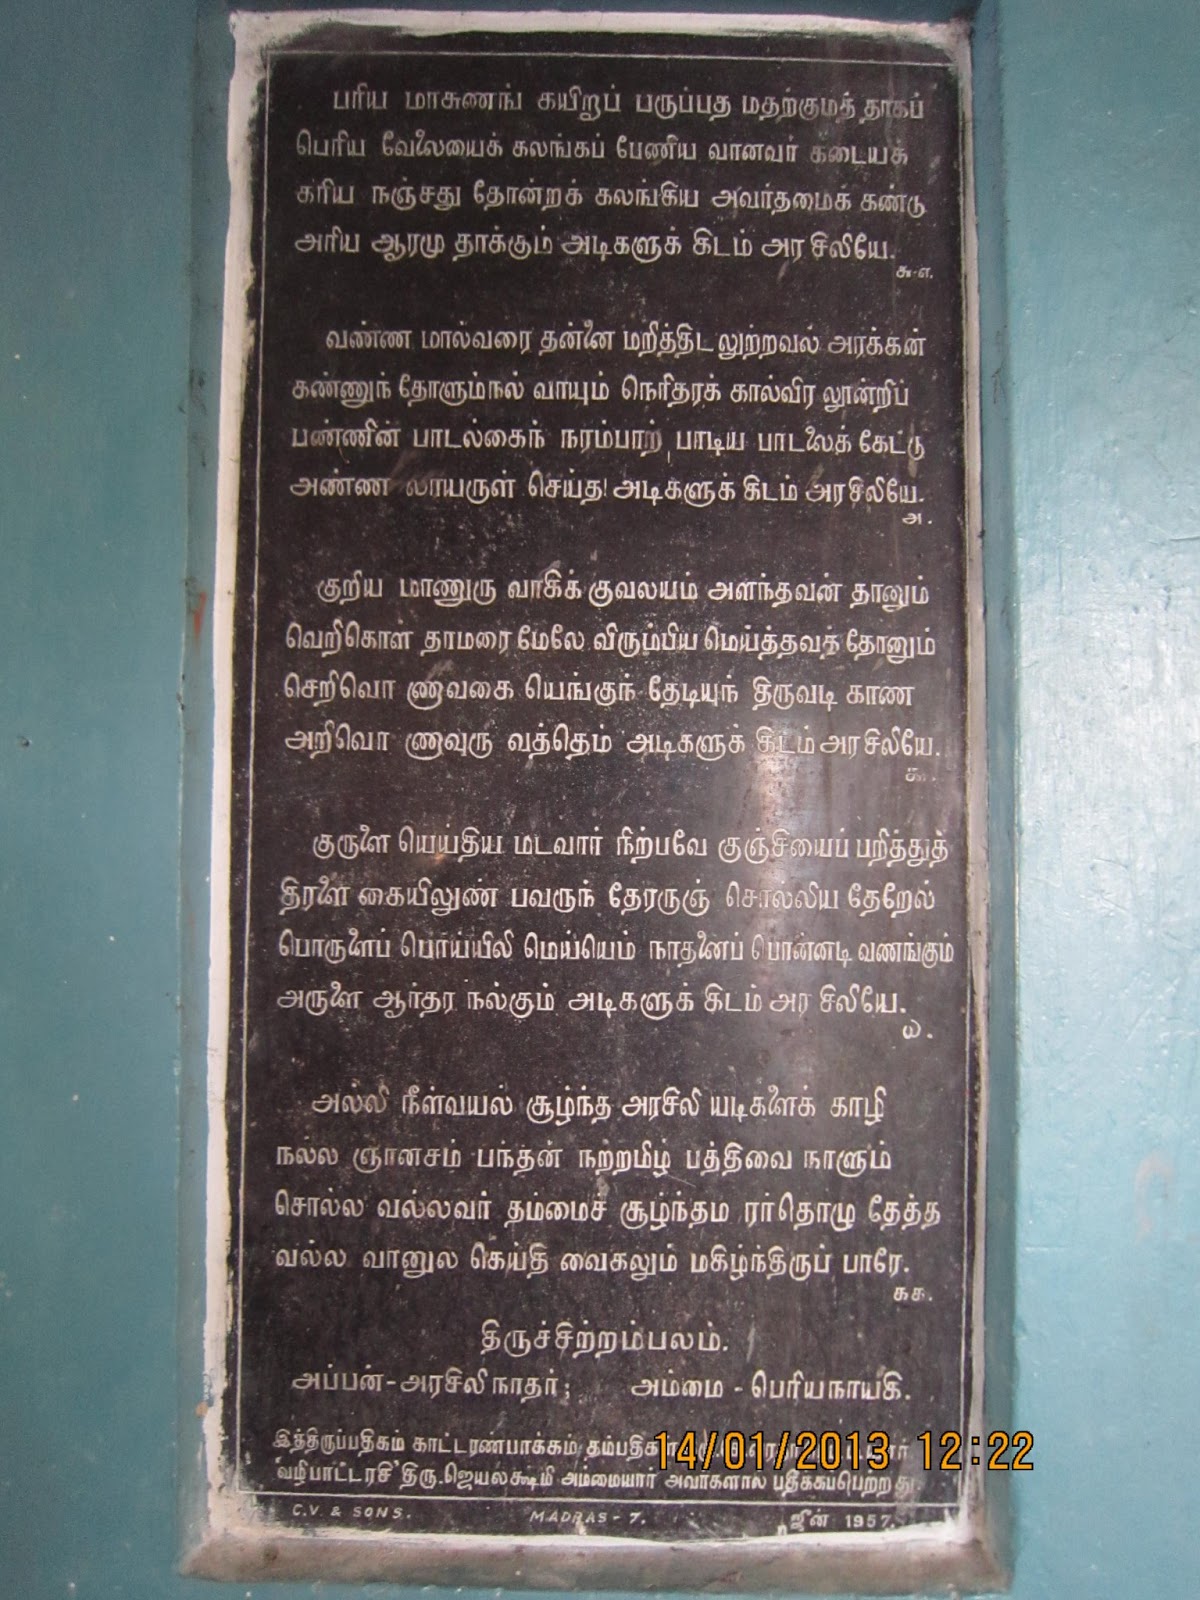 பரிய மாசுணங் கயிறுப் பருப்பத மதற்குமத் தாகப்
பெரிய வேலையைக் கலங்கப் பேணிய வானவர் கடையக்
கரிய நஞ்சது தோன்றக் கலங்கிய அவர்தமைக் கண்டு
அரிய ஆரமு தாக்கும் அடிகளுக் கிடம் அர சிலியே.
௬-எ.
வண்ண மால்வரை தன்னை மறித்திட லுற்றவல் அரக்கன்
கண்ணுந் தோளும்நல் வாயும் நெரிதரக் கால்விர லூன்றிப்
பண்ணின் பாடல்கைந் நரம்பாற் பாடிய பாடலைக் கேட்டு
அண்ண லாயருள் செய்த அடிகளுக் கிடம் அரசிலியே.
அ.
குறிய மாணுரு வாகிக் குவலயம் அளந்தவன் தானும்
வெறிகொள் தாமரை மேலே விரும்பிய மெய்த்தவத் தோனும்
செறிவொ ணுவகை யெங்குந் தேடியுந் திருவடி காண
அறிவொ ணுவுரு வத்தெம் அடிகளுக் கிடம் அர சிலியே.
௯.
குருளை யெய்திய மடவார் நிற்பவே குஞ்சியைப் பறித்துத்
திரளை கையிலுண் பவருந் தேரருஞ் சொல்லிய தேறேல்
பொருளைப் பொய்யிலி மெய்யெம் நாதனைப் பொன்னடி வணங்கும்
அருளை ஆர்தர நல்கும் அடிகளுக் கிடம் அர சிலியே.
௰.
அல்லி நீள்வயல் சூழ்ந்த அரசிலி யடிகளைக் காழி
நல்ல ஞானசம் பந்தன் நற்றமிழ் பத்திவை நாளும்
சொல்ல வல்லவர் தம்மைச் சூழ்ந்தம ரர்தொழு தேத்த
வல்ல வானுல கெய்தி வைகலும் மகிழ்ந்திருப் பாரே.
கக.
திருச்சிற்றம்பலம்.
அப்பன்-அரசிலிநாதர்; அம்மை - பெரியநாயகி.
இத்திருப்பதிகம் காட்டரணபாக்கம் தம்பதிகள்
'வழிபாட்டரசி' திரு.ஜெயலக்ஷ்மி அம்மையார் அவர்களால் பதிக்கப்பெற்றது.
C.V. & SONS. MADRAS - 7. ஜூன் 1957.
14/01/2013 12:22